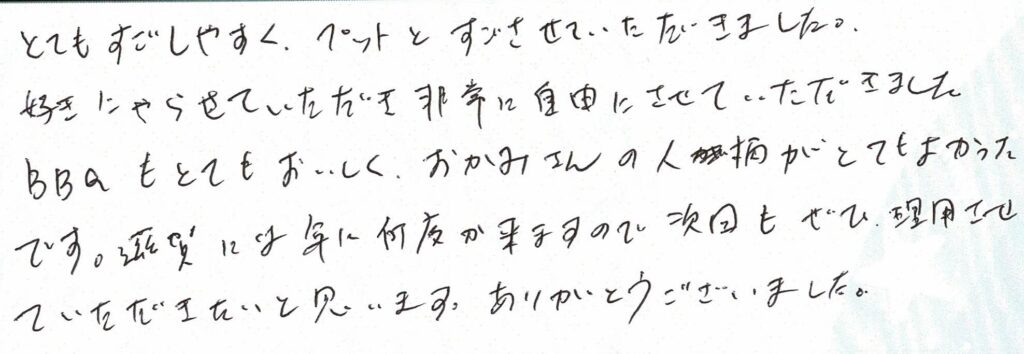 とてもすごしやすく、ペットとすごさせていただきました。
好きにやらせていただき非常に自由にさせていただきました
BBQもとてもおいしく、おかみさんの人柄がとてもよかった
です。滋賀には年に何度か来ますので次回もぜひ、理用させ
ていただきたいと思います。ありがとうございました。